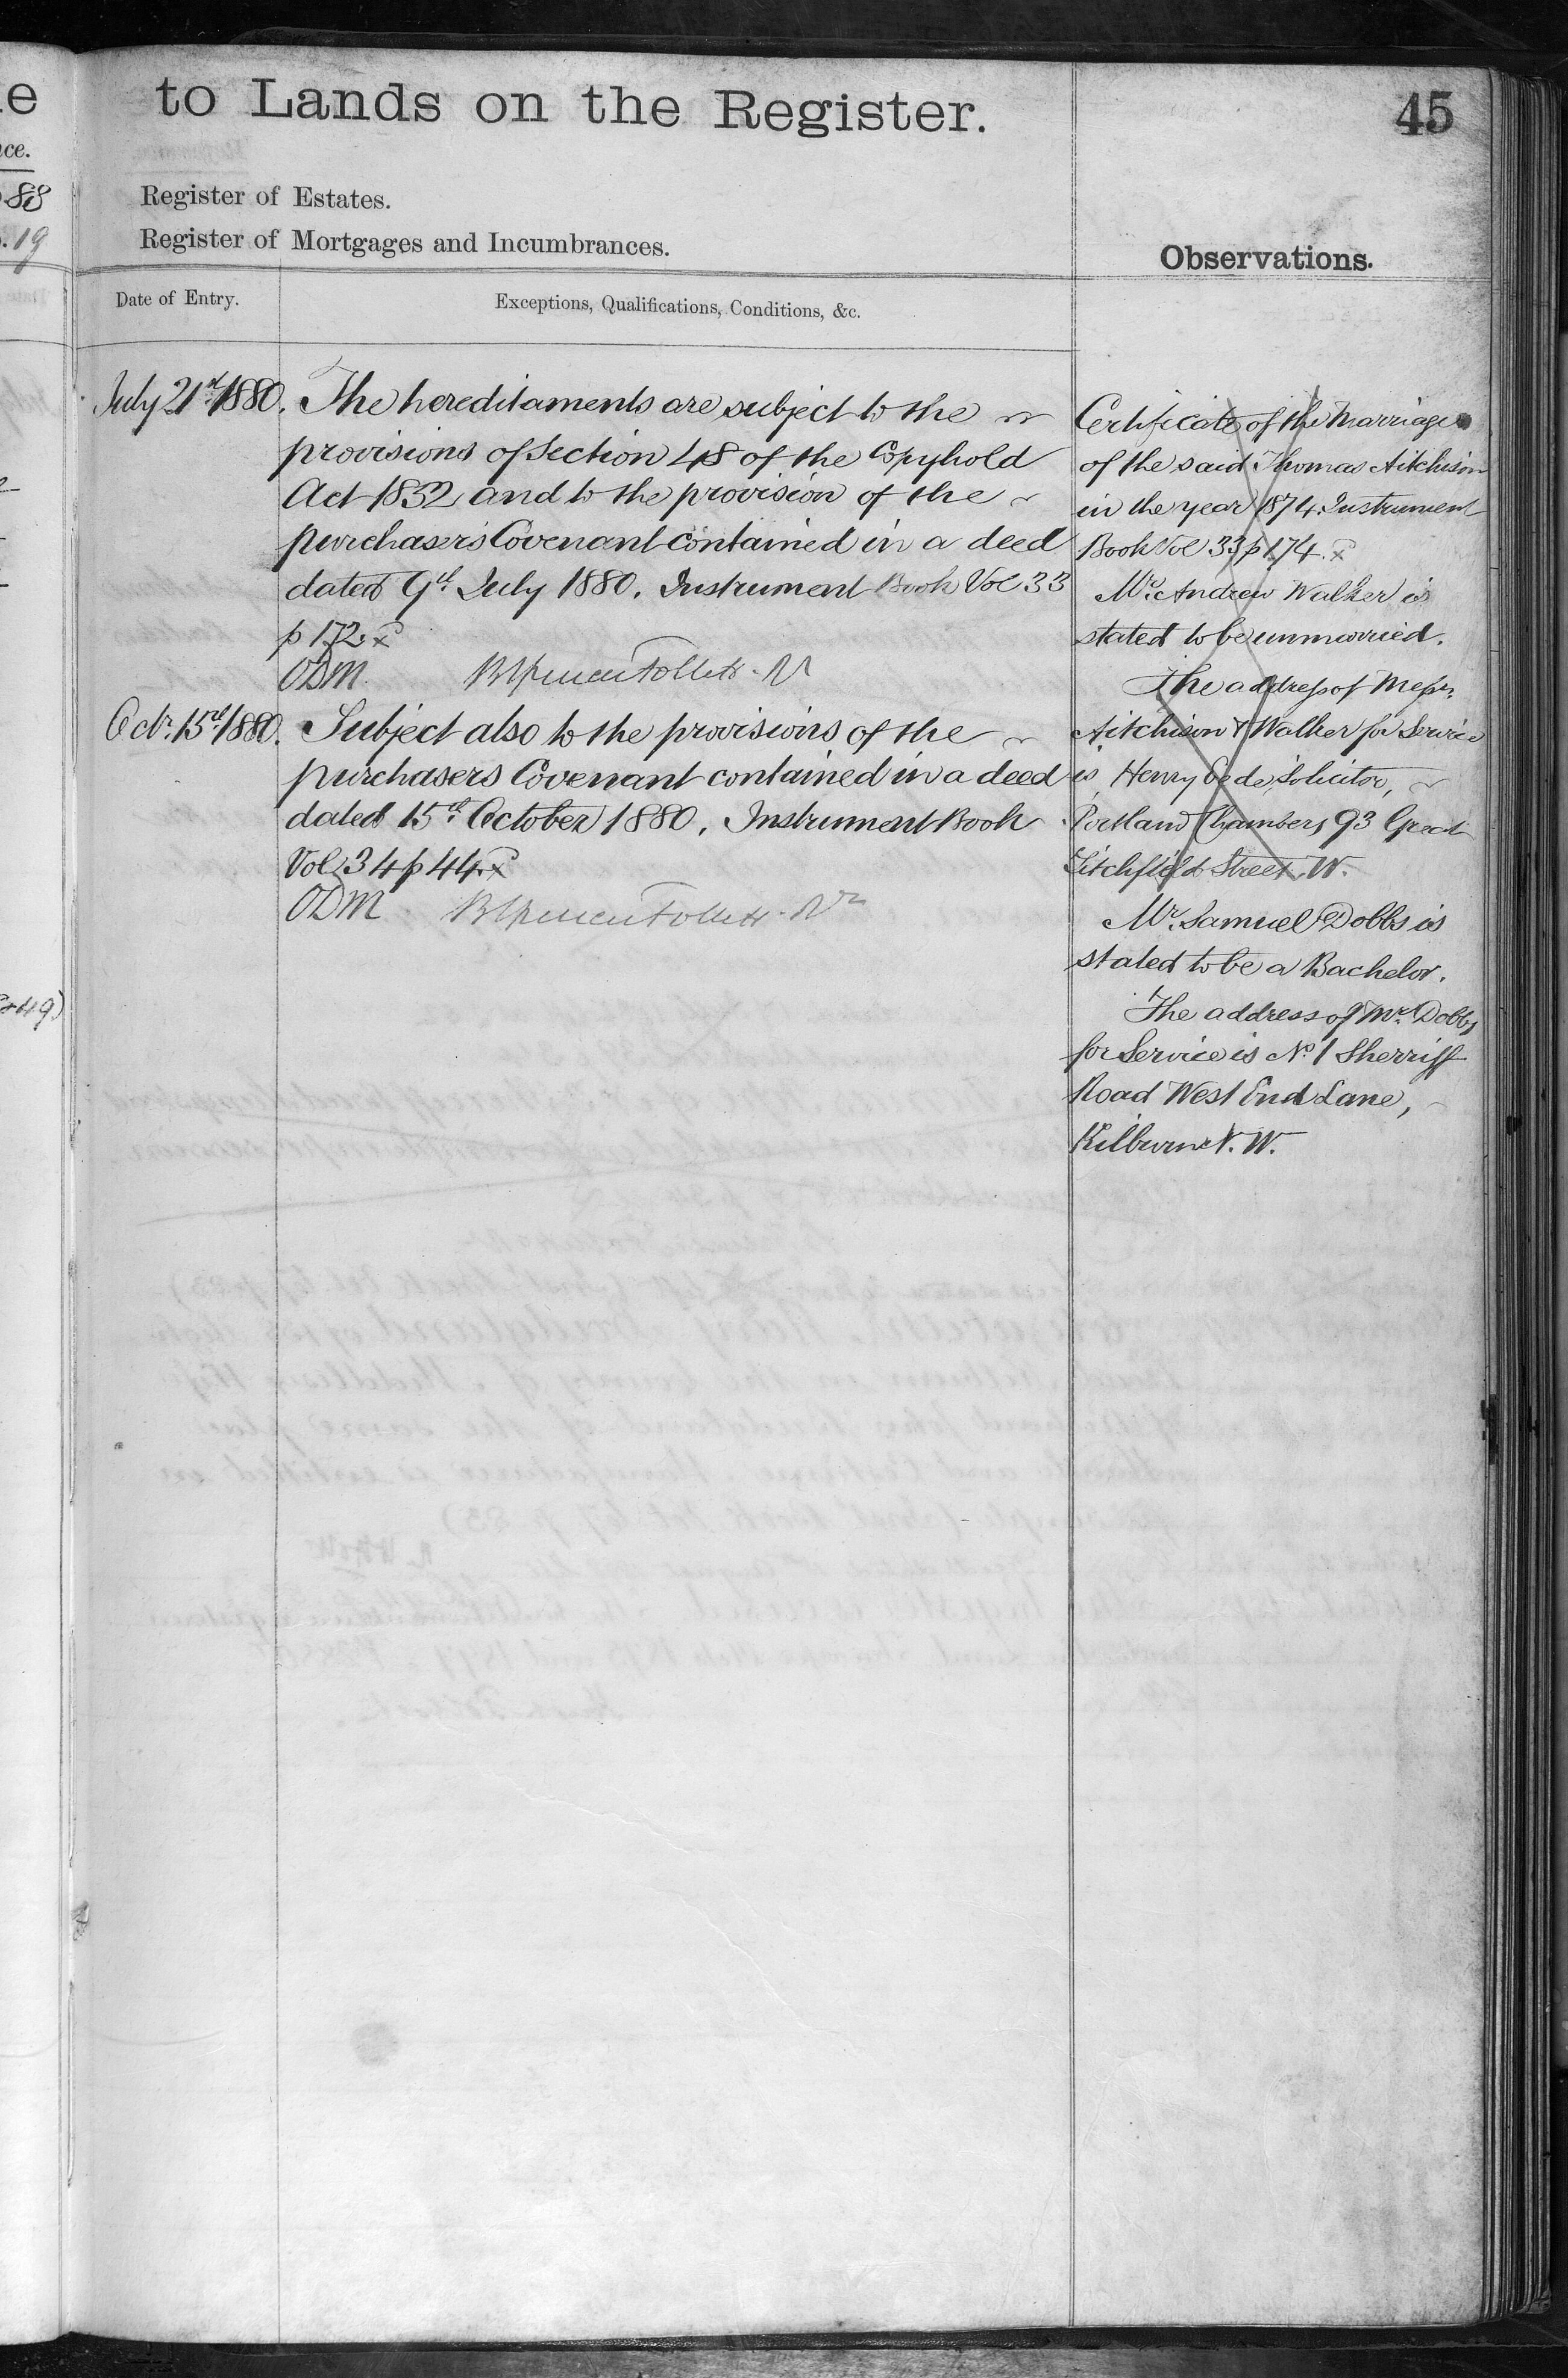 to Lands on the Register.
45
Register of Estates.
Register of Mortgages and Incumbrances.
Observations.
Date of Entry.
Exceptions, Qualifications, Conditions, &c.
July 21st 1880. The hereditaments are subject to the
provisions of Section 48 of the Copyhold
Act 1852 and to the provision of the
purchaser's Covenant contained in a deed
dated 9th July 1880. Instrument Book Vol 33
p 172.
ODM
Octr. 15th 1880. Subject also to the provisions of the
purchasers Covenant contained in a deed
dated 15th October 1880. Instrument Book
Vol 34 p 44.
ODM
Certificate of the Marriage
of the said Thomas Aitchison
in the year 1874. Instrument
Book Vol 33 p 174.
Mr. Andrew Walker is
stated to be unmarried.
The address of Messrs.
Aitchison & Walker for Service
is Henry Solicitor,
Portland Chambers 93 Great
Titchfield Street. W.
Mr. Samuel Dobbs is
stated to be a Bachelor.
The address of Mr. Dobbs
for Service is No. 1 Sherriff
Road West End Lane,
Kilburn N. W.
ce.
88
19
49)